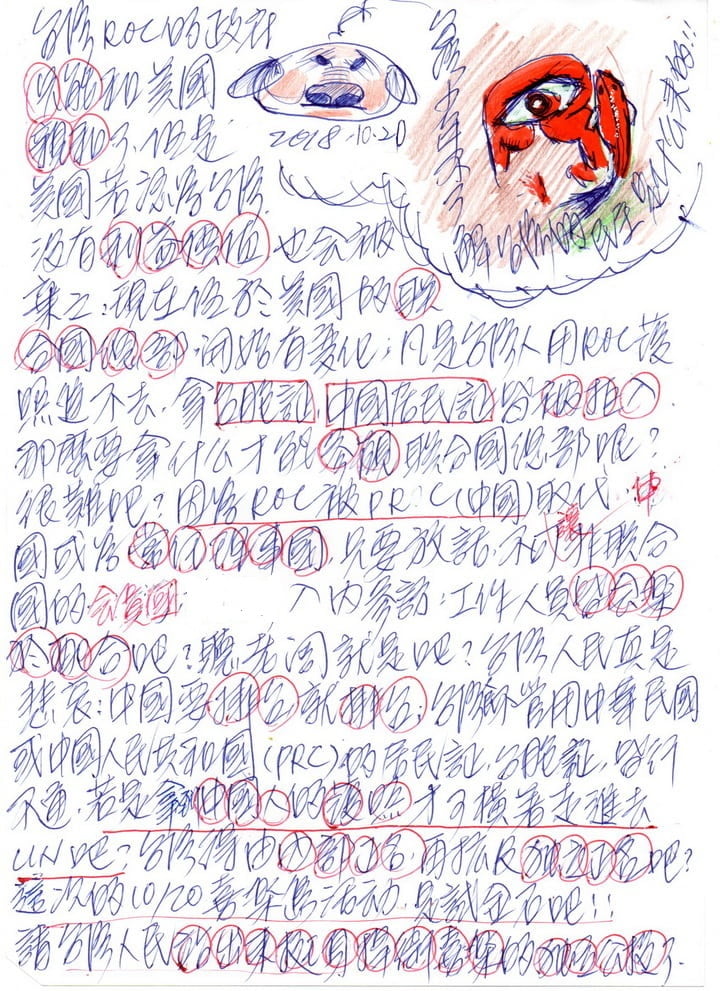 台灣ROC的政府
只能和美國
親和了,但是
美國若認為台灣
2018-10-20
沒有利益價值也會被
棄之:現在位於美國的聯
合國總部,開始有變化:凡是台灣人用ROC護
照進不去,拿台胞証,中國居民証皆被拒入
那麼要拿什么才能參觀聯合國總部呢?
很難吧?因為ROC被PRC(中國)取代,中
國成為常任理事國,只要放話,不可讓非聯合
國的會員國 入內參訪:工作人員
配合吧?聽老闆就是吧?台灣人民真是
悲哀:中國要排台就排台:台灣不管用中華民國
或中國人民共和國(PRC)的居民証,台胞証,皆行
不通,若是拿中國人的護照才可橫著走進去
UN吧?台灣得由內部正名,再拡及獨立正名吧?
這次的10/20喜樂島活动,是試金石吧!!
請台灣人民站出來 喜樂的 公投了